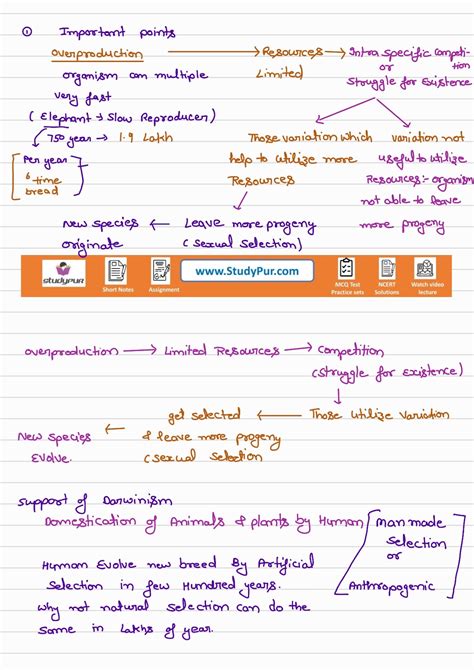 ① Important points
overproduction → Resources → Intra specific competi-
tion
Limited or
Struggle for Existence
organism can multiple
very fast
(Elephant → Slow Reproducer)
750 year → 1.9 Lakh
Per year
6 time
breed
Those variation which
help to utilize more
Resources
variation not
useful to utilize
Resources:- organism
not able to leave
more progeny
New species ← Leave more progeny
originate (sexual selection)
studypur
Short Notes
Assignment
www.StudyPur.com
MCQ Test
Practice sets
NCERT
Solutions
Watch video
lecture
overproduction → Limited Resources → Competition
(Struggle for existence)
get selected ← Those Utilize Variation
New Species ← & leave more progeny
Evolve. (sexual selection
support of Darwinism
Domestication of Animals & plants by Human
Man made
Selection
or
Anthropogenic
Human Evolve new breed By Artificial
Selection in few Hundred years.
why not natural selection can do the
same in Lakhs of year.